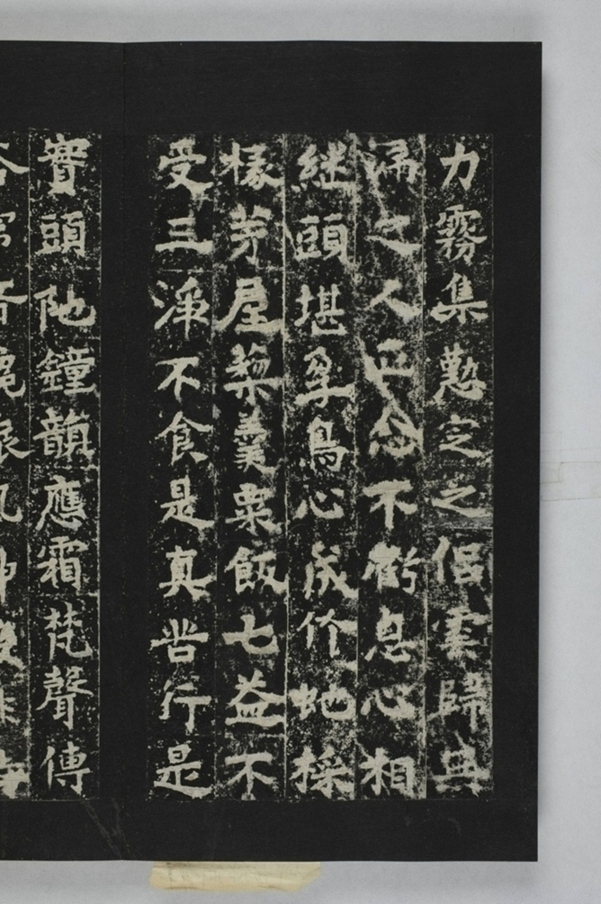 力霧集懃定之侶雲歸典
掃之人正念不虧息心相
継頭堪孕鳥心成虵採
椽茅屋藜羹粟飯七益不
受三淨不食是真苦行是
寶頭陁鐘韻應霜梵聲傳